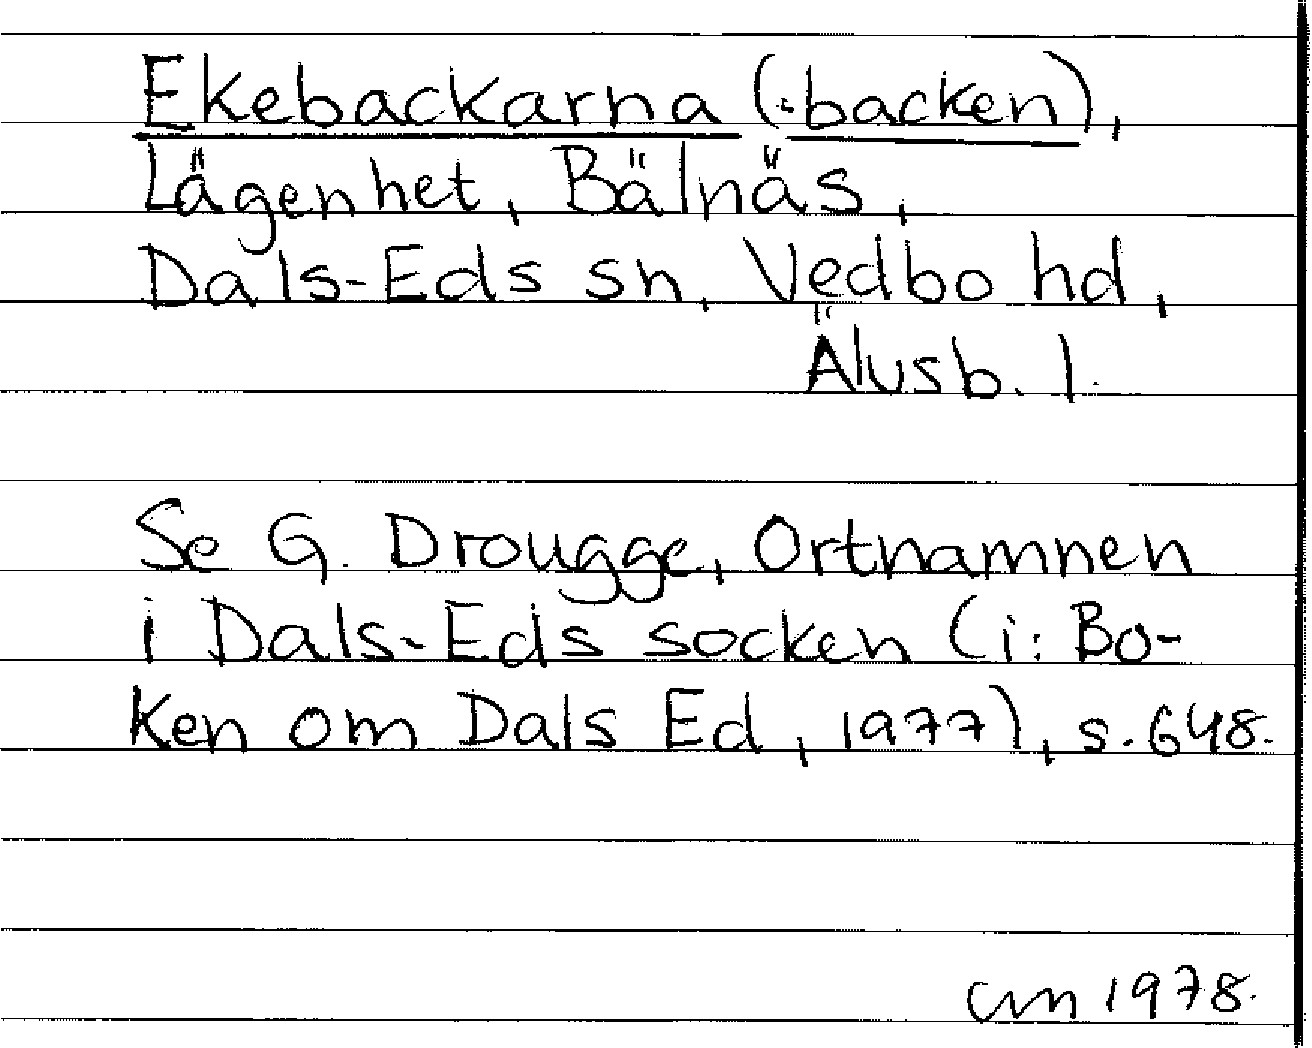 Ekebackarna (-backen),
Lägenhet, Bälnäs,
Dals-Eds sn, Vedbo hd,
Älvsb. l.
Se G. Drougge, Ortnamnen
i Dals-Eds socken (i: Bo-
ken om Dals Ed, 1977), s. 648.
cm 1978.